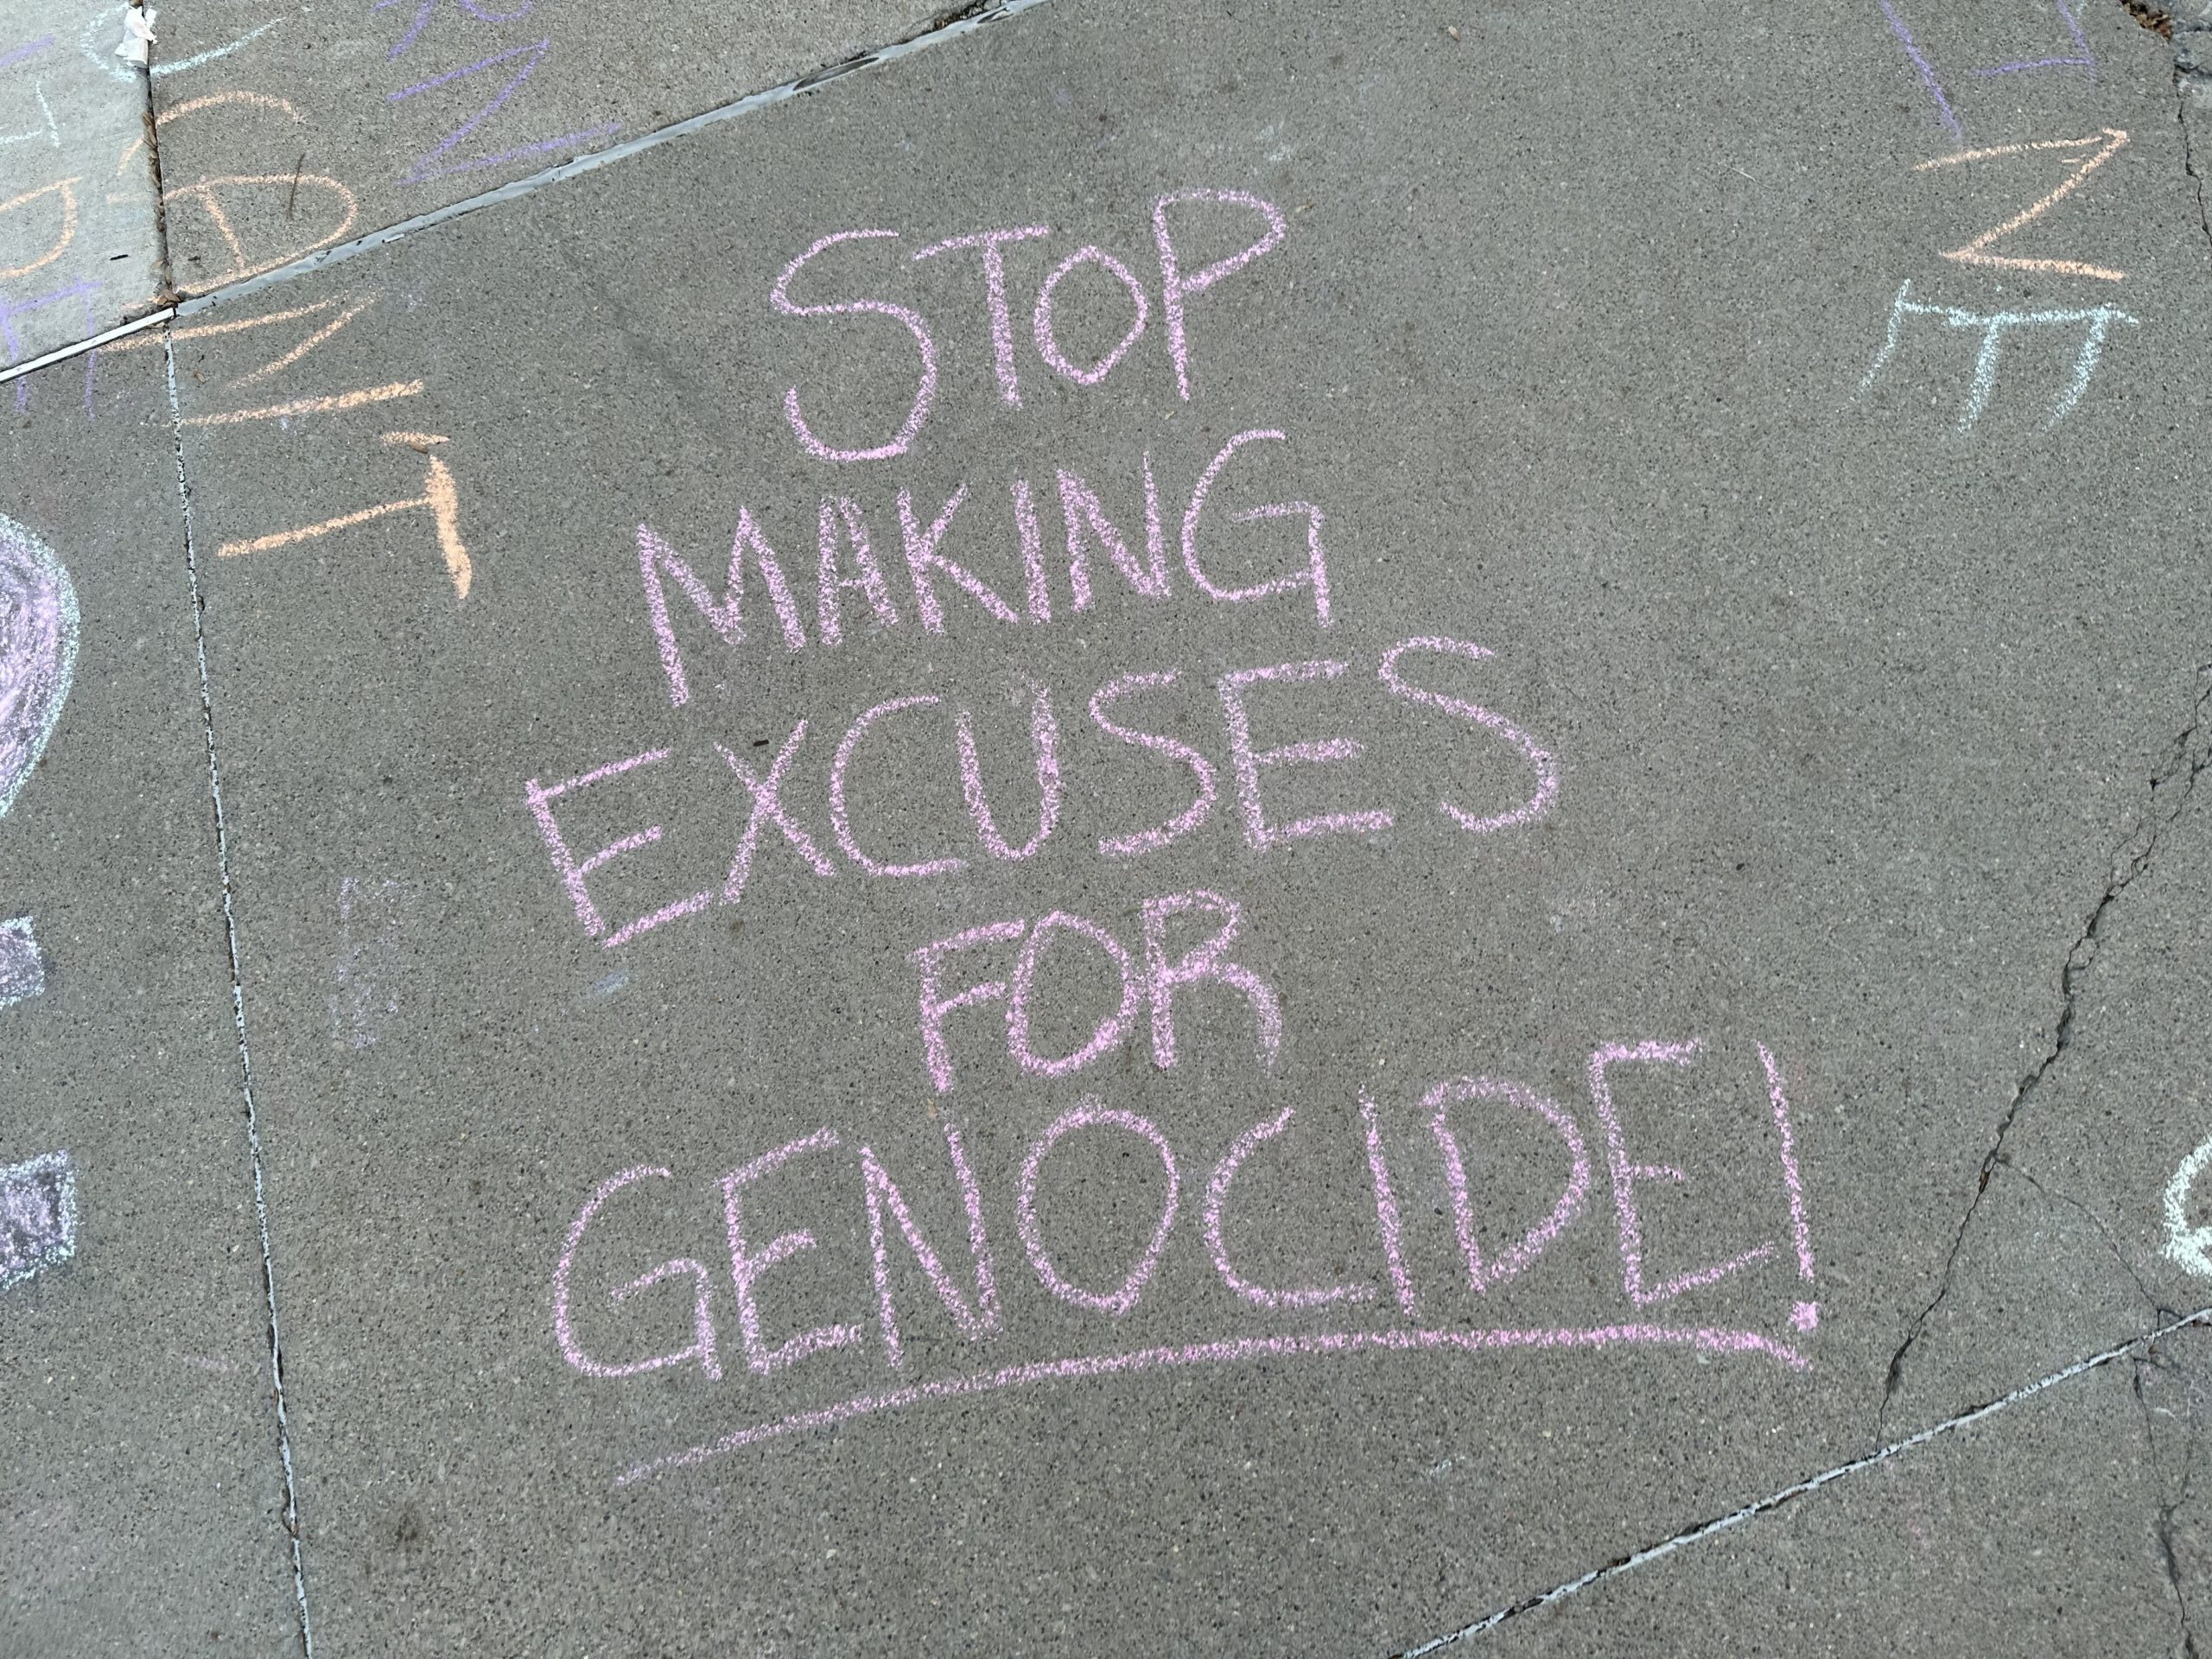 STOP
MAKING
EXCUSES
FOR
GENOCIDE!